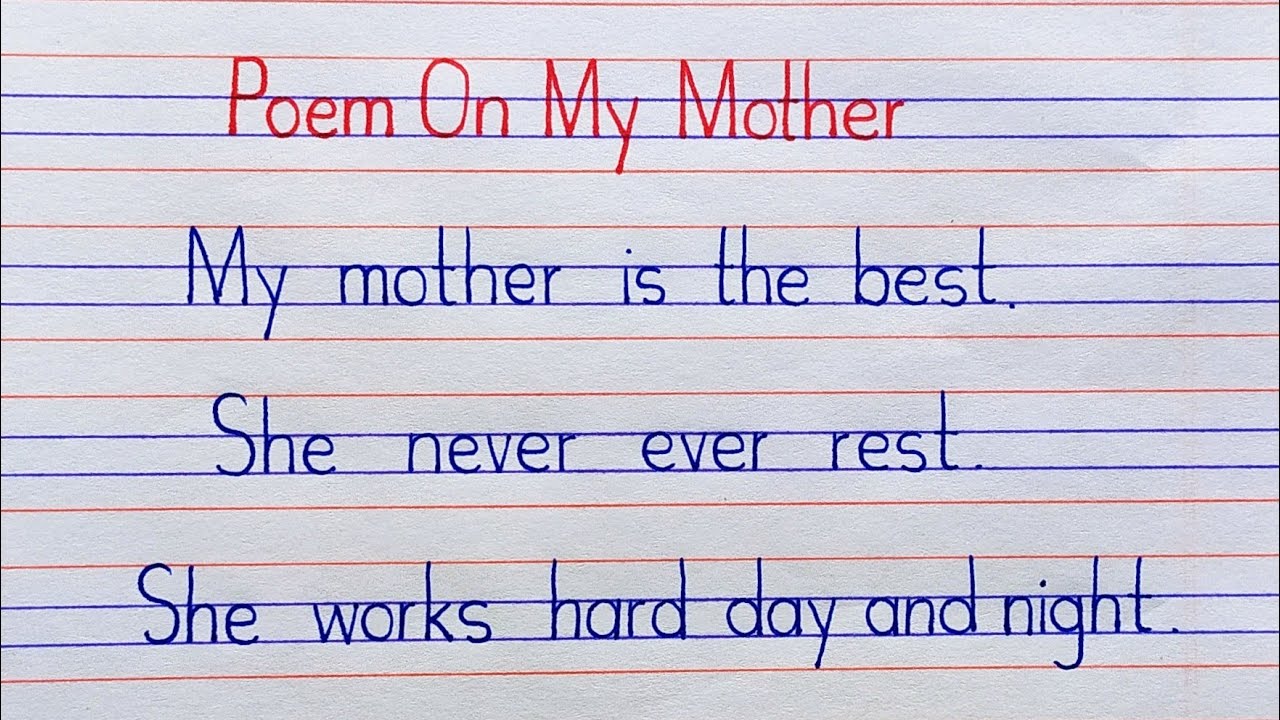 Poem On My Mother
My mother is the best.
She never ever rest.
She works hard day and night.